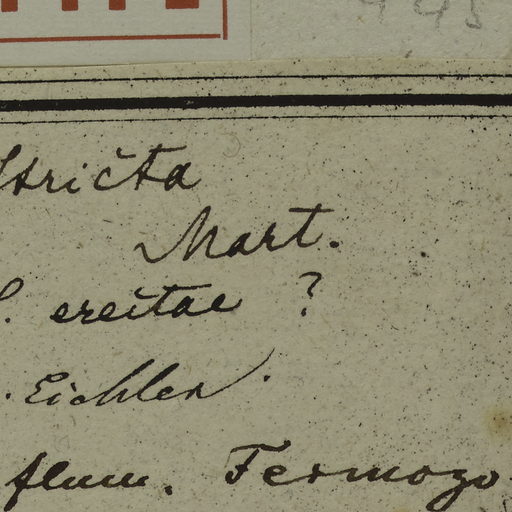 stricta
Mart.
erectae ?
Eichler.
flum. Fermogo